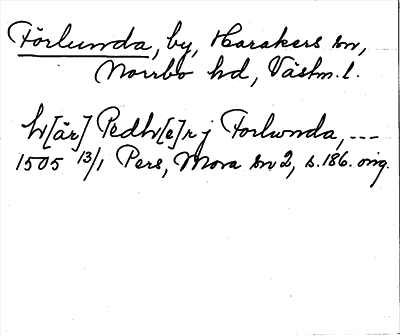 Förlunda, by, Harakers sn,
Norrbo hd, Västm. l.
h[är] Pedh[e]r j Forlwnda, ---
1505 13/1 Pers, Mora sn 2, s. 186. orig.